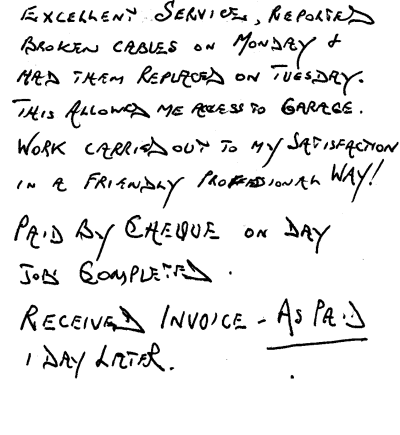 EXCELLENT SERVICE, REPORTED
BROKEN CABLES ON MONDAY &
HAD THEM REPLACED ON TUESDAY.
THIS ALLOWED ME ACCESS TO GARAGE.
WORK CARRIED OUT TO MY SATISFACTION
IN A FRIENDLY PROFESSIONAL WAY!
PAID BY CHEQUE ON DAY
JOB COMPLETED.
RECEIVED INVOICE - AS PAID
1 DAY LATER.